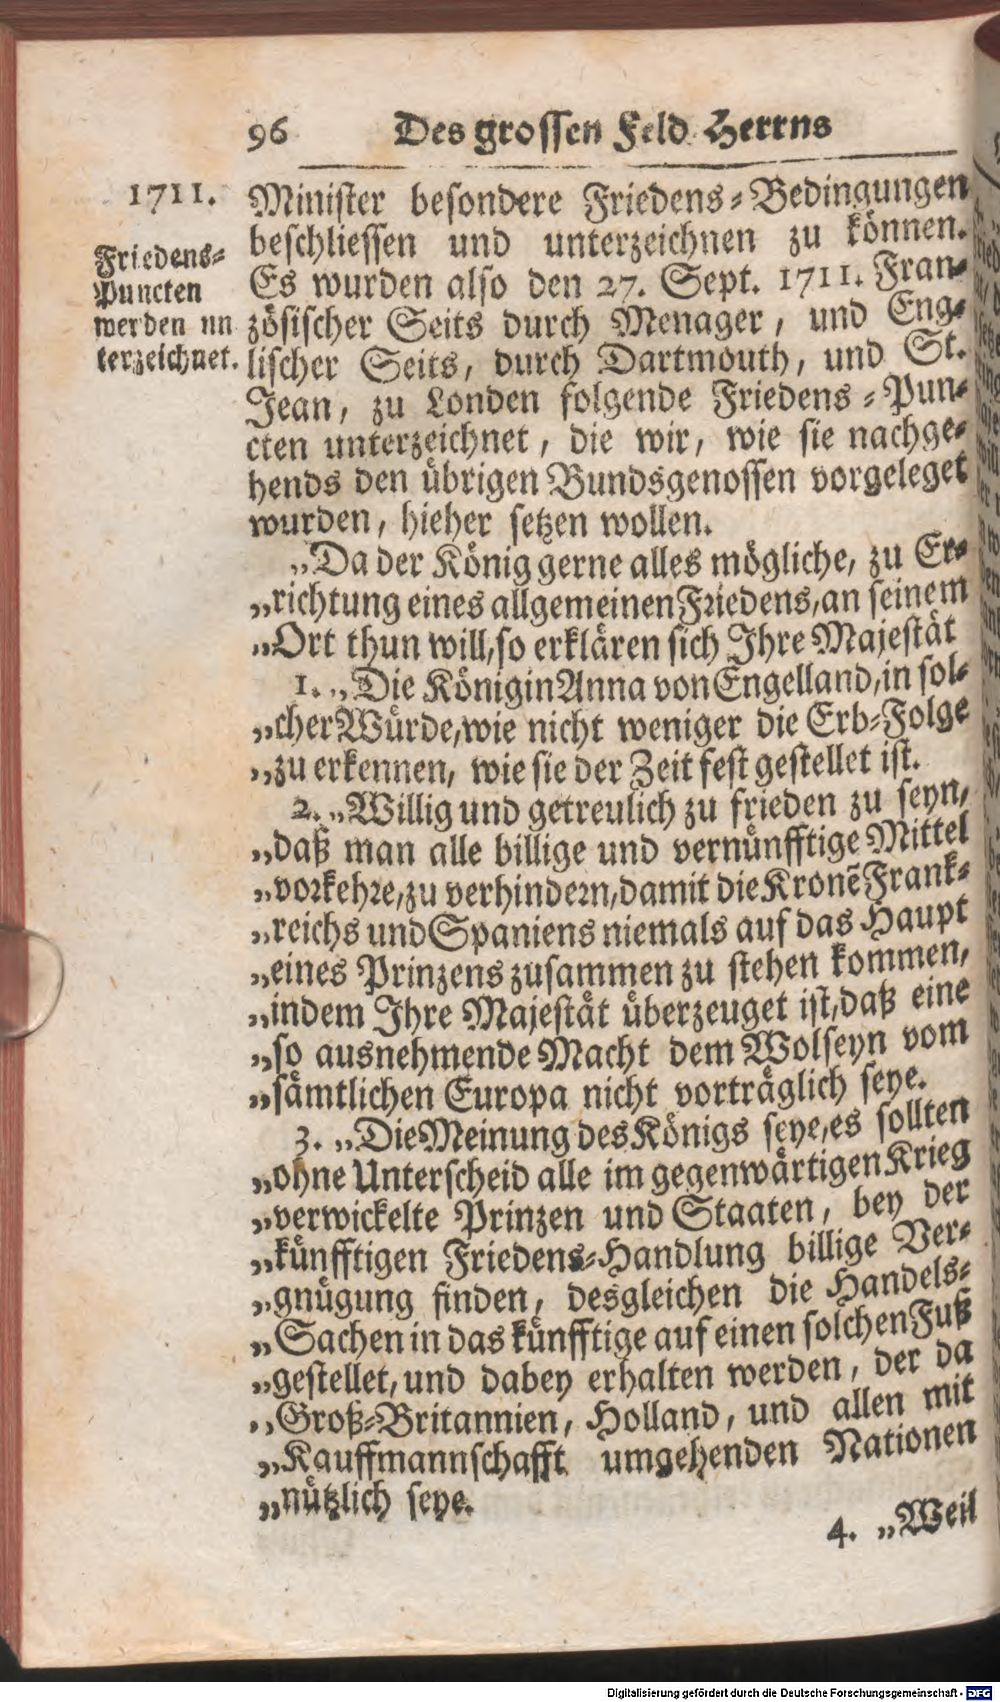 96 Des grossen Feld Herrns
1711.
Friedens-
Puncten
werden un
terzeichnet.
Minister besondere Friedens-Bedingungen
beschliessen und unterzeichnen zu können.
Es wurden also den 27. Sept. 1711. Fran-
zösischer Seits durch Menager, und Eng-
lischer Seits, durch Dartmouth, und St.
Jean, zu Londen folgende Friedens-Pun-
cten unterzeichnet, die wir, wie sie nachge-
hends den übrigen Bundsgenossen vorgeleget
wurden, hieher setzen wollen.
„Da der König gerne alles mögliche, zu Er-
„richtung eines allgemeinen Friedens, an seinem
„Ort thun will, so erklären sich Ihre Majestät
1. „Die Königin Anna von Engelland, in sol-
„cher Würde, wie nicht weniger die Erb-Folge
„zu erkennen, wie sie der Zeit fest gestellet ist.
2. „Willig und getreulich zu frieden zu seyn,
„daß man alle billige und vernünfftige Mittel
„vorkehre, zu verhindern, damit die Kronẽ Frank-
„reichs und Spaniens niemals auf das Haupt
„eines Prinzens zusammen zu stehen kommen,
„indem Ihre Majestät überzeuget ist, daß eine
„so ausnehmende Macht dem Wolseyn vom
„sämtlichen Europa nicht vorträglich seye.
3. „Die Meinung des Königs seye, es sollten
„ohne Unterscheid alle im gegenwärtigen Krieg
„verwickelte Prinzen und Staaten, bey der
„künfftigen Friedens-Handlung billige Ver-
„gnügung finden, desgleichen die Handels-
„Sachen in das künfftige auf einen solchen Fuß
„gestellet, und dabey erhalten werden, der da
„Groß-Britannien, Holland, und allen mit
„Kauffmannschafft umgehenden Nationen
„nützlich seye.
4. „Weil
Digitalisierung gefördert durch die Deutsche Forschungsgemeinschaft - DFG